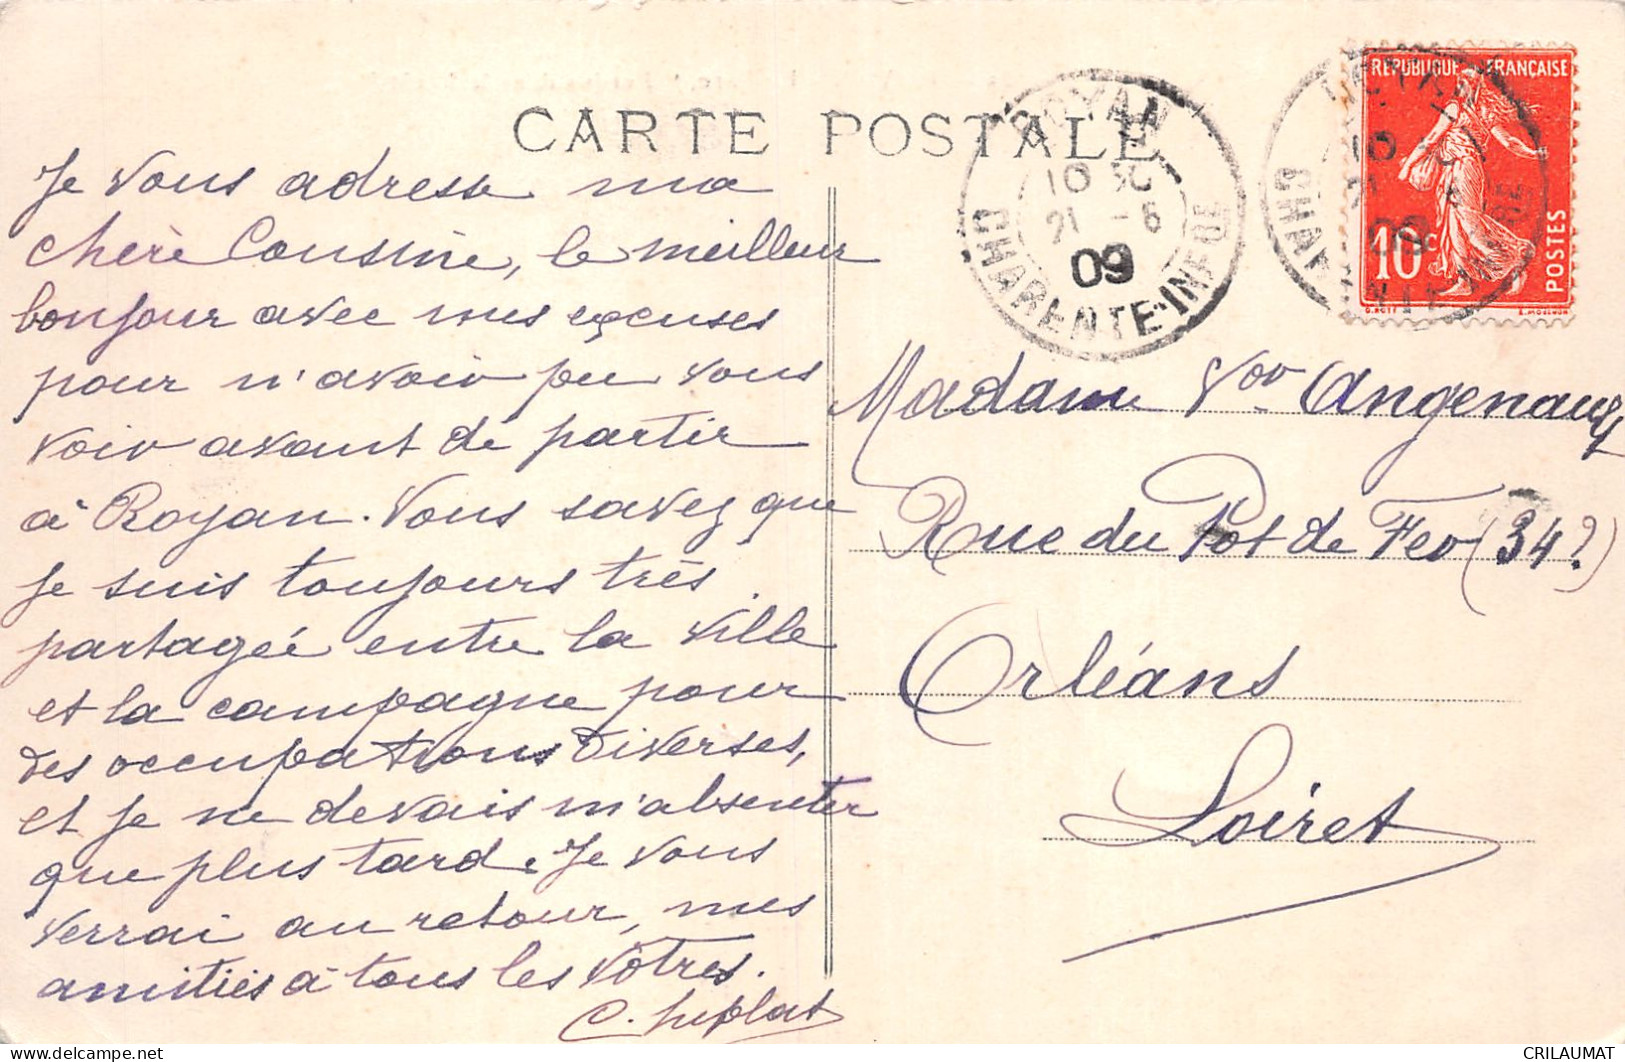 CARTE POSTALE
Je vous adresse ma
chère Cousine, le meilleur
bonjour avec mes excuses
pour n'avoir pu vous
voir avant de partir
à Royan. Vous savez que
je suis toujours très
partagée entre la ville
et la campagne pour
des occupations diverses,
et je ne devais m'absenter
que plus tard. Je vous
verrai au retour, mes
amitiés à tous les vôtres.
C.
ROYAN
10 30
21 - 6
09
CHARENTE-INFRE
REPUBLIQUE FRANÇAISE
10c
POSTES
O. ROTY
E. MOUCHON
Madame Vve
Rue du Pot de Fer (34?)
Orléans
Loiret
delcampe.net
CRILAUMAT